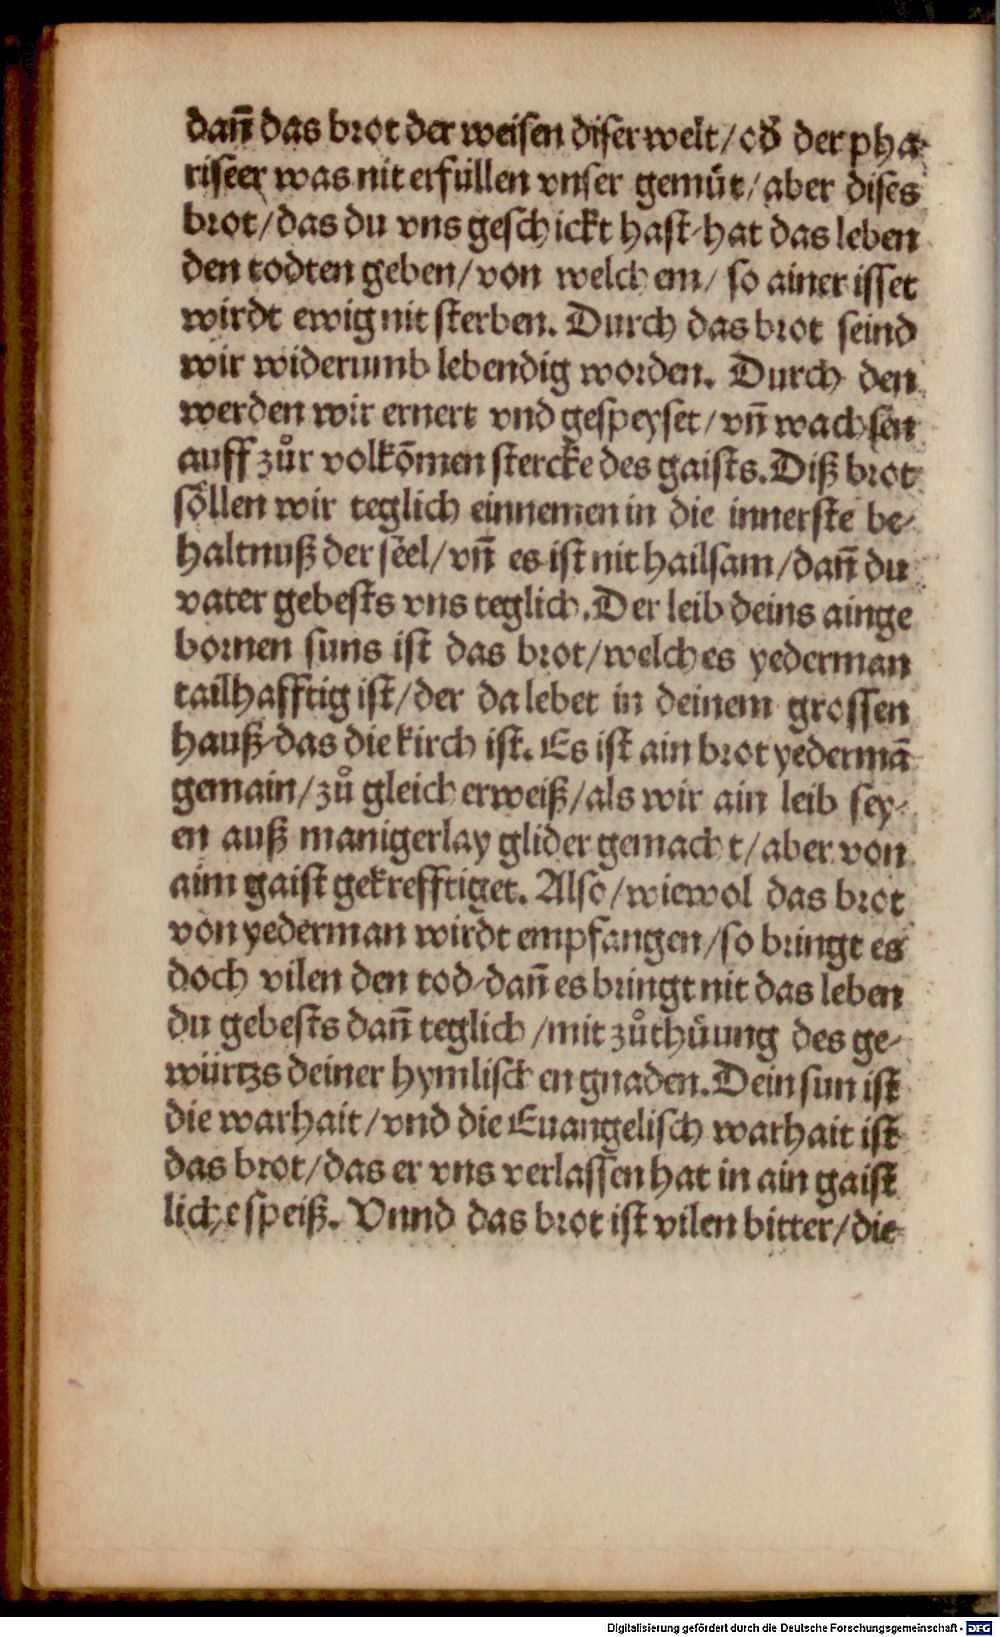 dañ das brot der weisen diser welt/ od̕ der pha-
riseer was nit erfüllen vnser gemüt/ aber dises
brot/ das du vns geschickt hast/ hat das leben
den todten geben/ von welchem/ so ainer isset
wirdt ewig nit sterben. Durch das brot seind
wir widerumb lebendig worden. Durch den
werden wir ernert vnd gespeyset/ vñ wachsen
auff zůr volkōmen stercke des gaists. Diß brot
söllen wir teglich einnemen in die innerste be-
haltnuß der seel/ vñ es ist nit hailsam/ dañ du
vater gebests vns teglich. Der leib deins ainge
bornen suns ist das brot/ welches yederman
tailhafftig ist/ der da lebet in deinem grossen
hauß/ das die kirch ist. Es ist ain brot yedermā
gemain/ zů gleicherweiß/ als wir ain leib sey-
en auß manigerlay glider gemacht/ aber von
aim gaist gekrefftiget. Also/ wiewol das brot
von yederman wirdt empfangen/ so bringt es
doch vilen den tod/ dañ es bringt nit das leben
du gebests dañ teglich/ mit zůthüung des ge-
würtzs deiner hymlischen gnaden. Dein sun ist
die warhait/ vnd die Euangelisch warhait ist
das brot/ das er vns verlassen hat in ain gaist
liche speiß. Vnnd das brot ist vilen bitter/ die
Digitalisierung gefördert durch die Deutsche Forschungsgemeinschaft - DFG